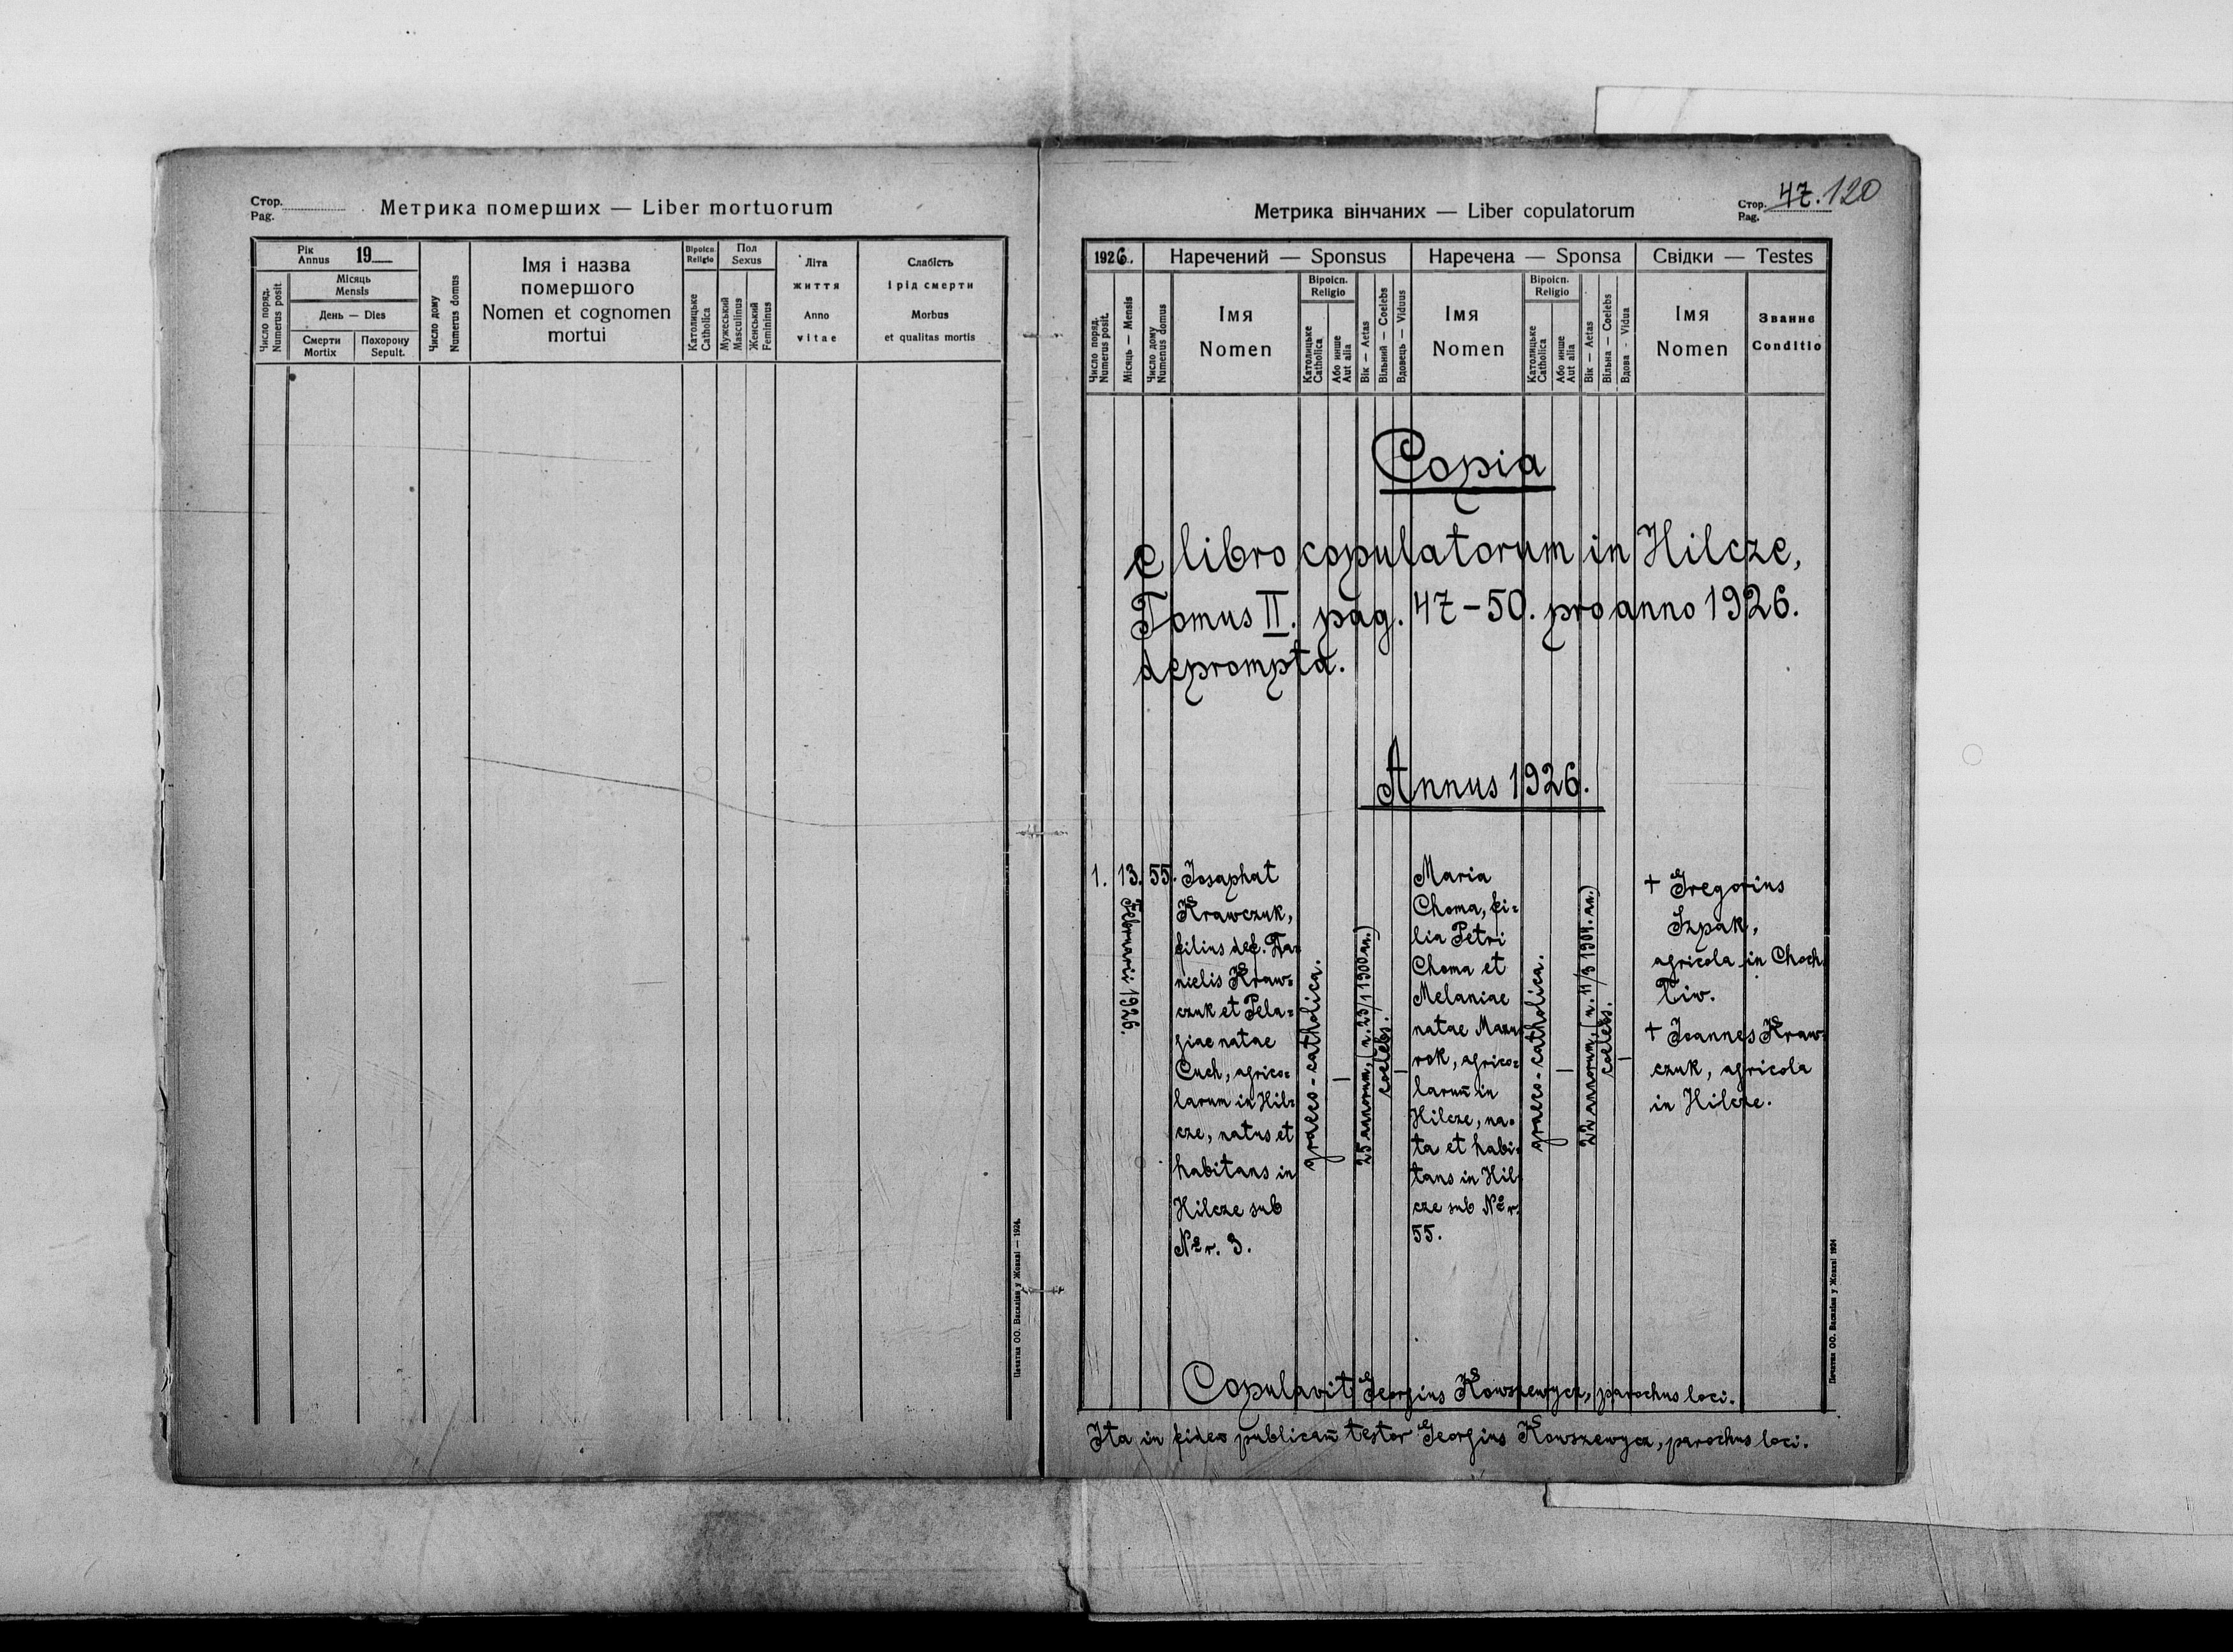 Стор.
Pag.
Метрика померших — Liber mortuorum
Рік
Annus 19
Число поряд.
Numerus posit
Місяць
Mensis
День — Dies
Смерти
Mortix
Похорону
Sepult.
Число дому
Numerus domus
Імя і назва
помершого
Nomen et cognomen
mortui
Віроісп.
Religio
Католицьке
Catholica
Пол
Sexus
Мужеський
Masculinus
Женський
Femininus
Літа
життя
Anno
vitae
Слабість
і рід смерти
Morbus
et qualitas mortis
Печатня ОО. Василіян у Жовкві — 1924.
Метрика вінчаних — Liber copulatorum
Стор.
Pag.
47. 120
1926.
Наречений — Sponsus
Наречена — Sponsa
Свідки — Testes
Число поряд.
Numerus posit.
Місяць — Mensis
Число дому
Numenus domus
Імя
Nomen
Віроісп.
Religio
Католицьке
Catholica
Або инше
Aut alia
Вік — Aetas
Вільний — Coelebs
Вдовець — Viduus
Імя
Nomen
Віроісп.
Religio
Католицьке
Catholica
Або инше
Aut alia
Вік — Aetas
Вільна — Coelebs
Вдова - Vidua
Імя
Nomen
Званнє
Conditio
Copia
e libro copulatorum in Hilcze,
Tomus II. pag. 47-50. pro anno 1926.
deprompta.
Annus 1926.
1.
13.
Februarii 1926.
55.
Josaphat
Krawczuk,
filius def. Da=
nielis Kraw=
czuk et Pela=
giae natae
Cuch, agrico=
larum in Hil=
cze, natus et
habitans in
Hilcze sub
Nr. 3.
graeco-catholica.
—
25 annorum, (n. 23/1 1900 an.)
coelebs.
—
Maria
Choma, fi=
lia Petri
Choma et
Melaniae
natae Mazu=
rok, agrico=
larum̄ in
Hilcze, na=
ta et habi=
tans in Hil=
cze sub Nr.
55.
graeco-catholica.
—
22 annorum, (n. 11/3 1904. an.)
coelebs.
—
+ Gregorius
Szpak,
agricola in Choch
łiw.
+ Joannes Kraw=
czuk, agricola
in Hilcze.
Copulavit Georgius Kowszewycz, parochus loci.
Ita in fidem publicam̄ testor Georgius Kowszewycz, parochus loci.
Печатня ОО. Василіян у Жовкві 1924